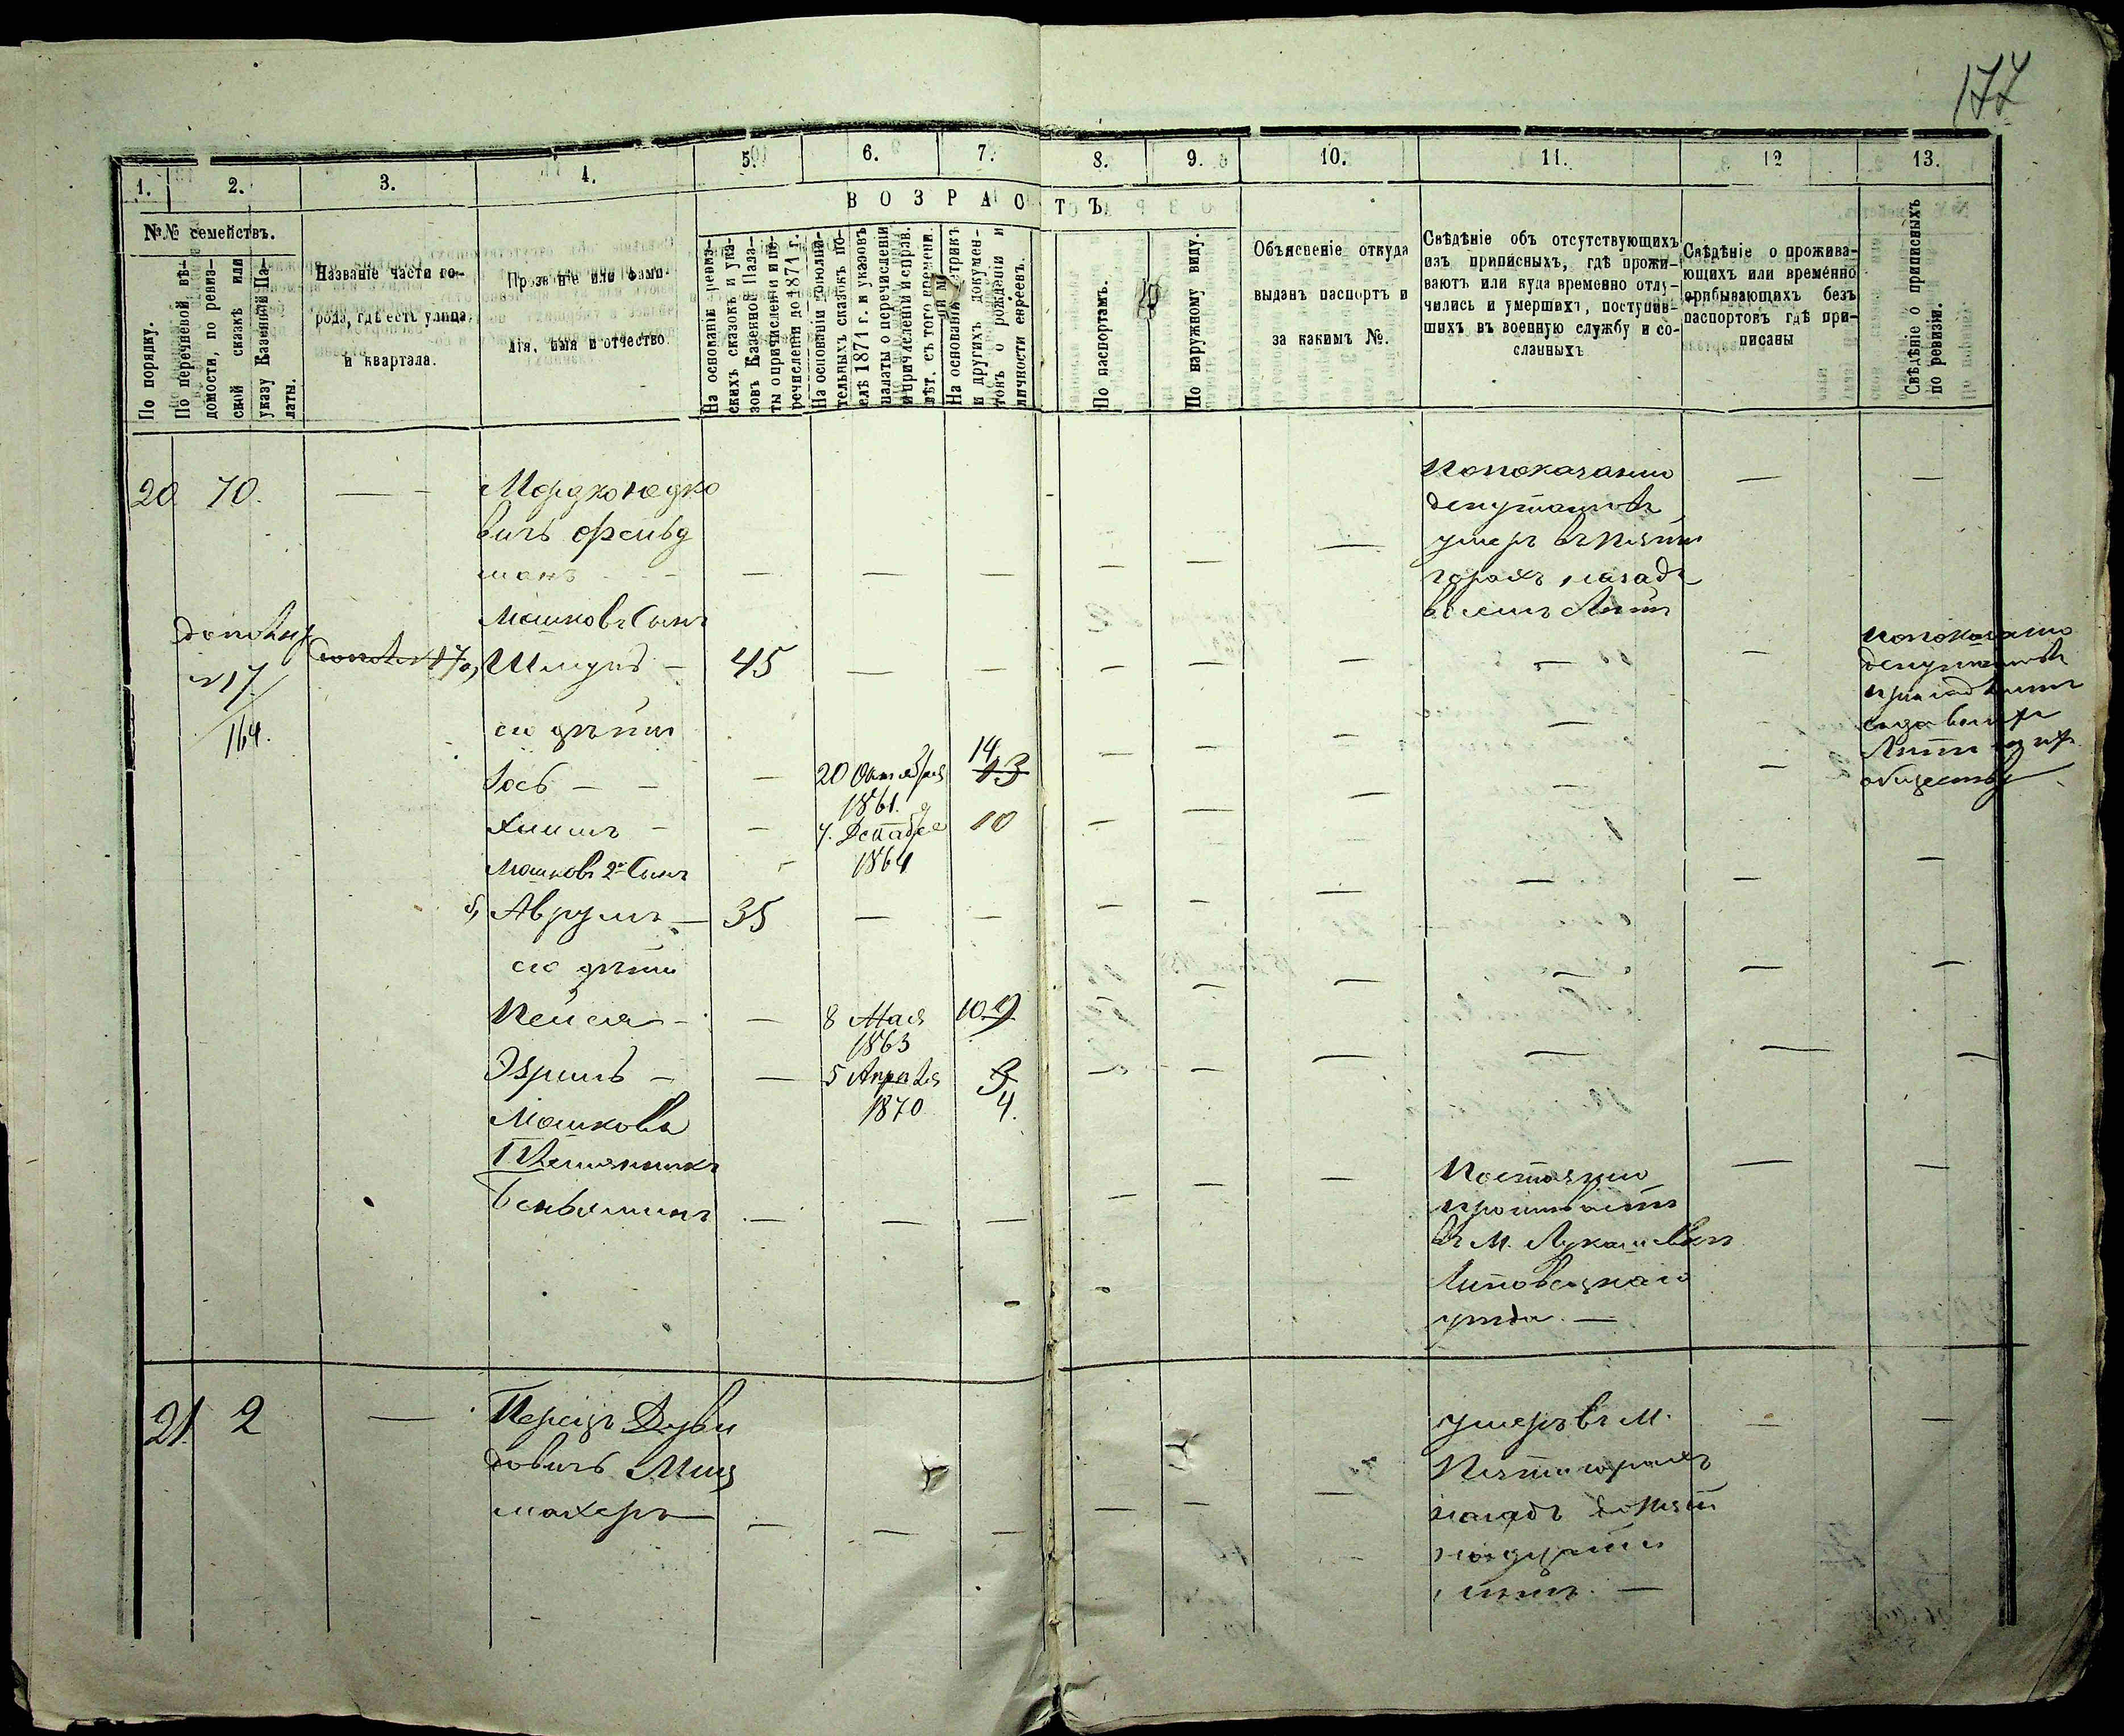 177
1.
2.
3.
4.
5.
6.
7.
8.
9.
10.
11.
12
13.
ВОЗРАСТЪ
№№ семействъ.
По порядку.
По перечневой вѣ-
домости, по ревиз-
ской сказкѣ или
указу Казенной Па-
латы.
Названіе части го-
рода, гдѣ есть улица
и квартала.
Прозваніе или фами-
лія, имя и отчество.
На основаніи ревиз-
скихъ сказокъ и ука-
зовъ Казенной Пала-
ты о причисленіи и пе-
речисленіи до 1871 г.
На основаніи дополни-
тельныхъ сказокъ по-
слѣ 1871 г. и указовъ
палаты о перечисленіи
и причисленіи и справ.
лѣт. съ того времени.
На основаніи метрикъ
и другихъ докумен-
товъ о рожденіи и
личности евреевъ.
По паспортамъ.
По наружному виду.
Объясненіе откуда
выданъ паспортъ и
за какимъ №.
Свѣдѣніе объ отсутствующихъ
изъ приписныхъ, гдѣ прожи-
ваютъ или куда временно отлу-
чились и умершихъ, поступив-
шихъ въ военную службу и со-
сланныхъ
Свѣдѣніе о прожива-
ющихъ или временно
прибывающихъ безъ
паспортовъ гдѣ при-
писаны
Свѣдѣніе о приписныхъ
по ревизіи.
20 70. —
Мордко Юдко
вичъ Фельд
манъ
По показанію
депутатовъ
умеръ въ Пяти
горахъ, назадъ
восемь лѣтъ
Мошковъ Сынъ
17
164.
Шмуль — 45
По показанію
депутатовъ
обществу
его дѣти
Іось — — 20 Октября 14 13
1861.
Хаимъ — — 7. Декабря 10
1864
Мошковъ 2й Сынъ
Аврумъ — 35
его дѣти
Пейся — — 8 Мая 10. 9.
1863
Эзриль — — 5 Апрѣля 3
1870 4.
Мошковъ
Племянникъ
Беньяминъ
Постоянно
проживаетъ
въ М. Лукашевкѣ
Липовецкаго
уѣзда. —
21. 2 —
Перецъ Дуви
довичъ Миц
махеръ
умеръ въ М.
Пятигорахъ
назадъ
лѣтъ. —